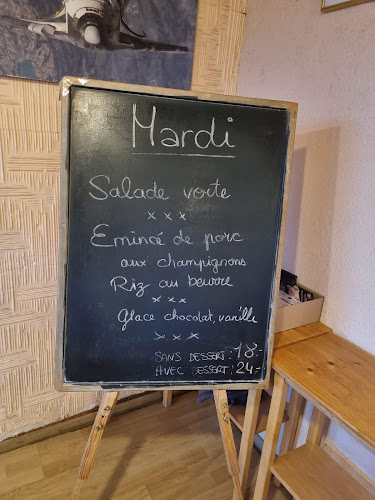 Mardi
Salade verte
x x x
Emincé de porc
aux champignons
Riz au beurre
x x x
Glace chocolat, vanille
x x x
SANS DESSERT : 18.-
AVEC DESSERT : 24.-